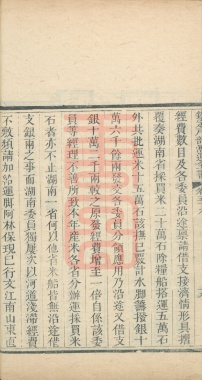 經費數目及各委員沿途咸請借支接濟情形具摺
覆奏湖南省採買米二十萬石除糧船搭運五萬石
外共批運米十五萬石該撫已發計水腳籌撥銀十
萬六千餘兩發交各委員分領應用乃沿途又借支
銀十萬二千兩較之原發經費增至一倍自係該委
員等經理不善所致本年產米各省分辦運採買米
石者亦不止湖南一省何以他省米船皆無沿途借
支銀兩之事而湖南委員獨屢次以河道淺滯經費
不敷煩請加給運腳阿林保現已行文江南山東直